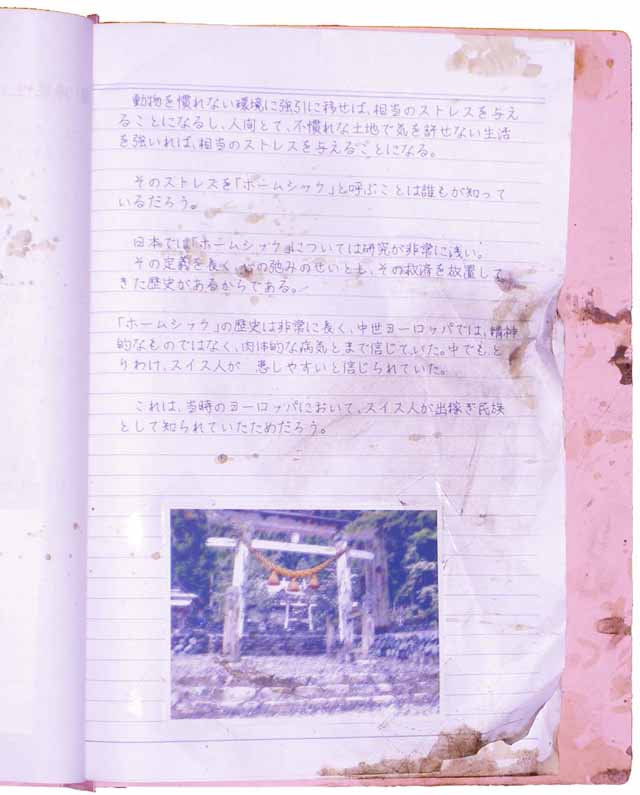 動物を慣れない環境に強引に移せば、相当のストレスを与え
ることになるし、人間とて、不慣れな土地で気を許せない生活
を強いれば、相当のストレスを与えることになる。
そのストレスを「ホームシック」と呼ぶことは誰もが知って
いるだろう。
日本では「ホームシック」については研究が非常に浅い。
その定義を長く、心の弛みのせいとし、その救済を放置して
きた歴史があるからである。
「ホームシック」の歴史は非常に長く、中世ヨーロッパでは、精神
的なものではなく、肉体的な病気とまで信じていた。中でもと
りわけ、スイス人が 患しやすいと信じられていた。
これは、当時のヨーロッパにおいて、スイス人が出稼ぎ民族
として知られていたためだろう。